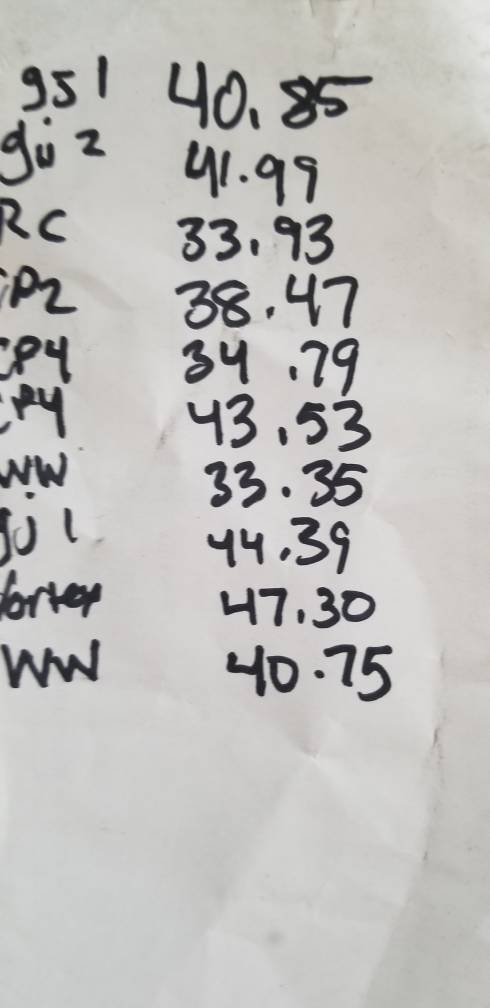 gs 1 40.85
gii 2 41.99
RC 33.93
CP2 38.47
CP4 34.79
CP4 43.53
WW 33.35
44.39
Vortex 47.30
WW 40.75